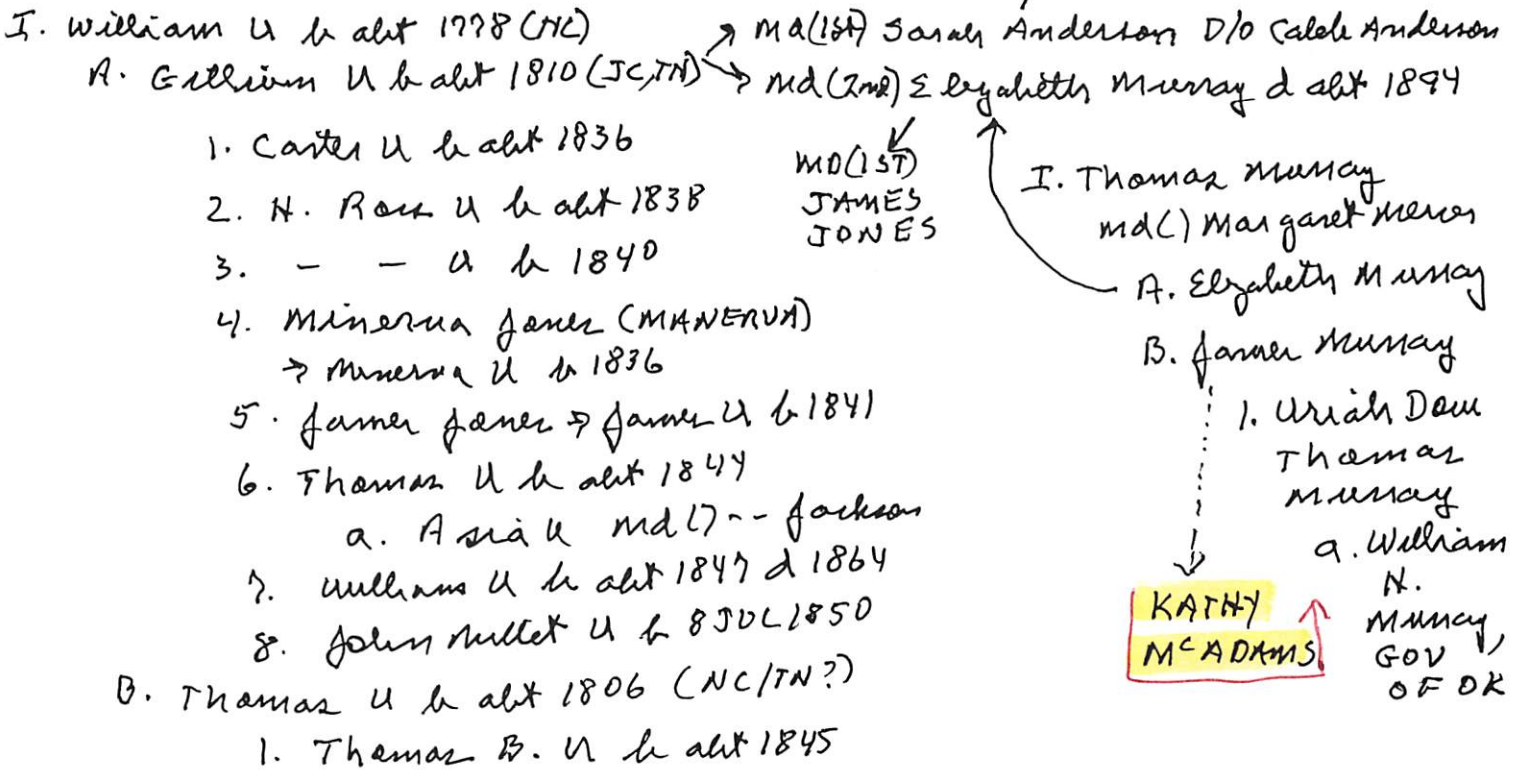 I. William U b abt 1778 (NC)
md(1st) Sarah Anderson D/o Caleb Anderson
A. Gilliam U b abt 1810 (JC,TN)
md(2nd) Elizabeth Murray d abt 1894
MD(1ST)
JAMES
JONES
1. Carter U b abt 1836
2. H. Ross U b abt 1838
3. - - U b 1840
4. Minerva Jones (MANERVA)
→ Minerva U b 1836
5. James Jones → James U b 1841
6. Thomas U b abt 1844
a. Asia U md() -- Jackson
7. William U b abt 1847 d 1864
8. John U b 8 JUL 1850
B. Thomas U b abt 1806 (NC/TN?)
1. Thomas B. U b abt 1845
I. Thomas Murray
md() Margaret
A. Elizabeth Murray
B. James Murray
1. Uriah Dow
Thomas
Murray
a. William
H.
Murray,
GOV
OF OK
KATHY
MCADAMS